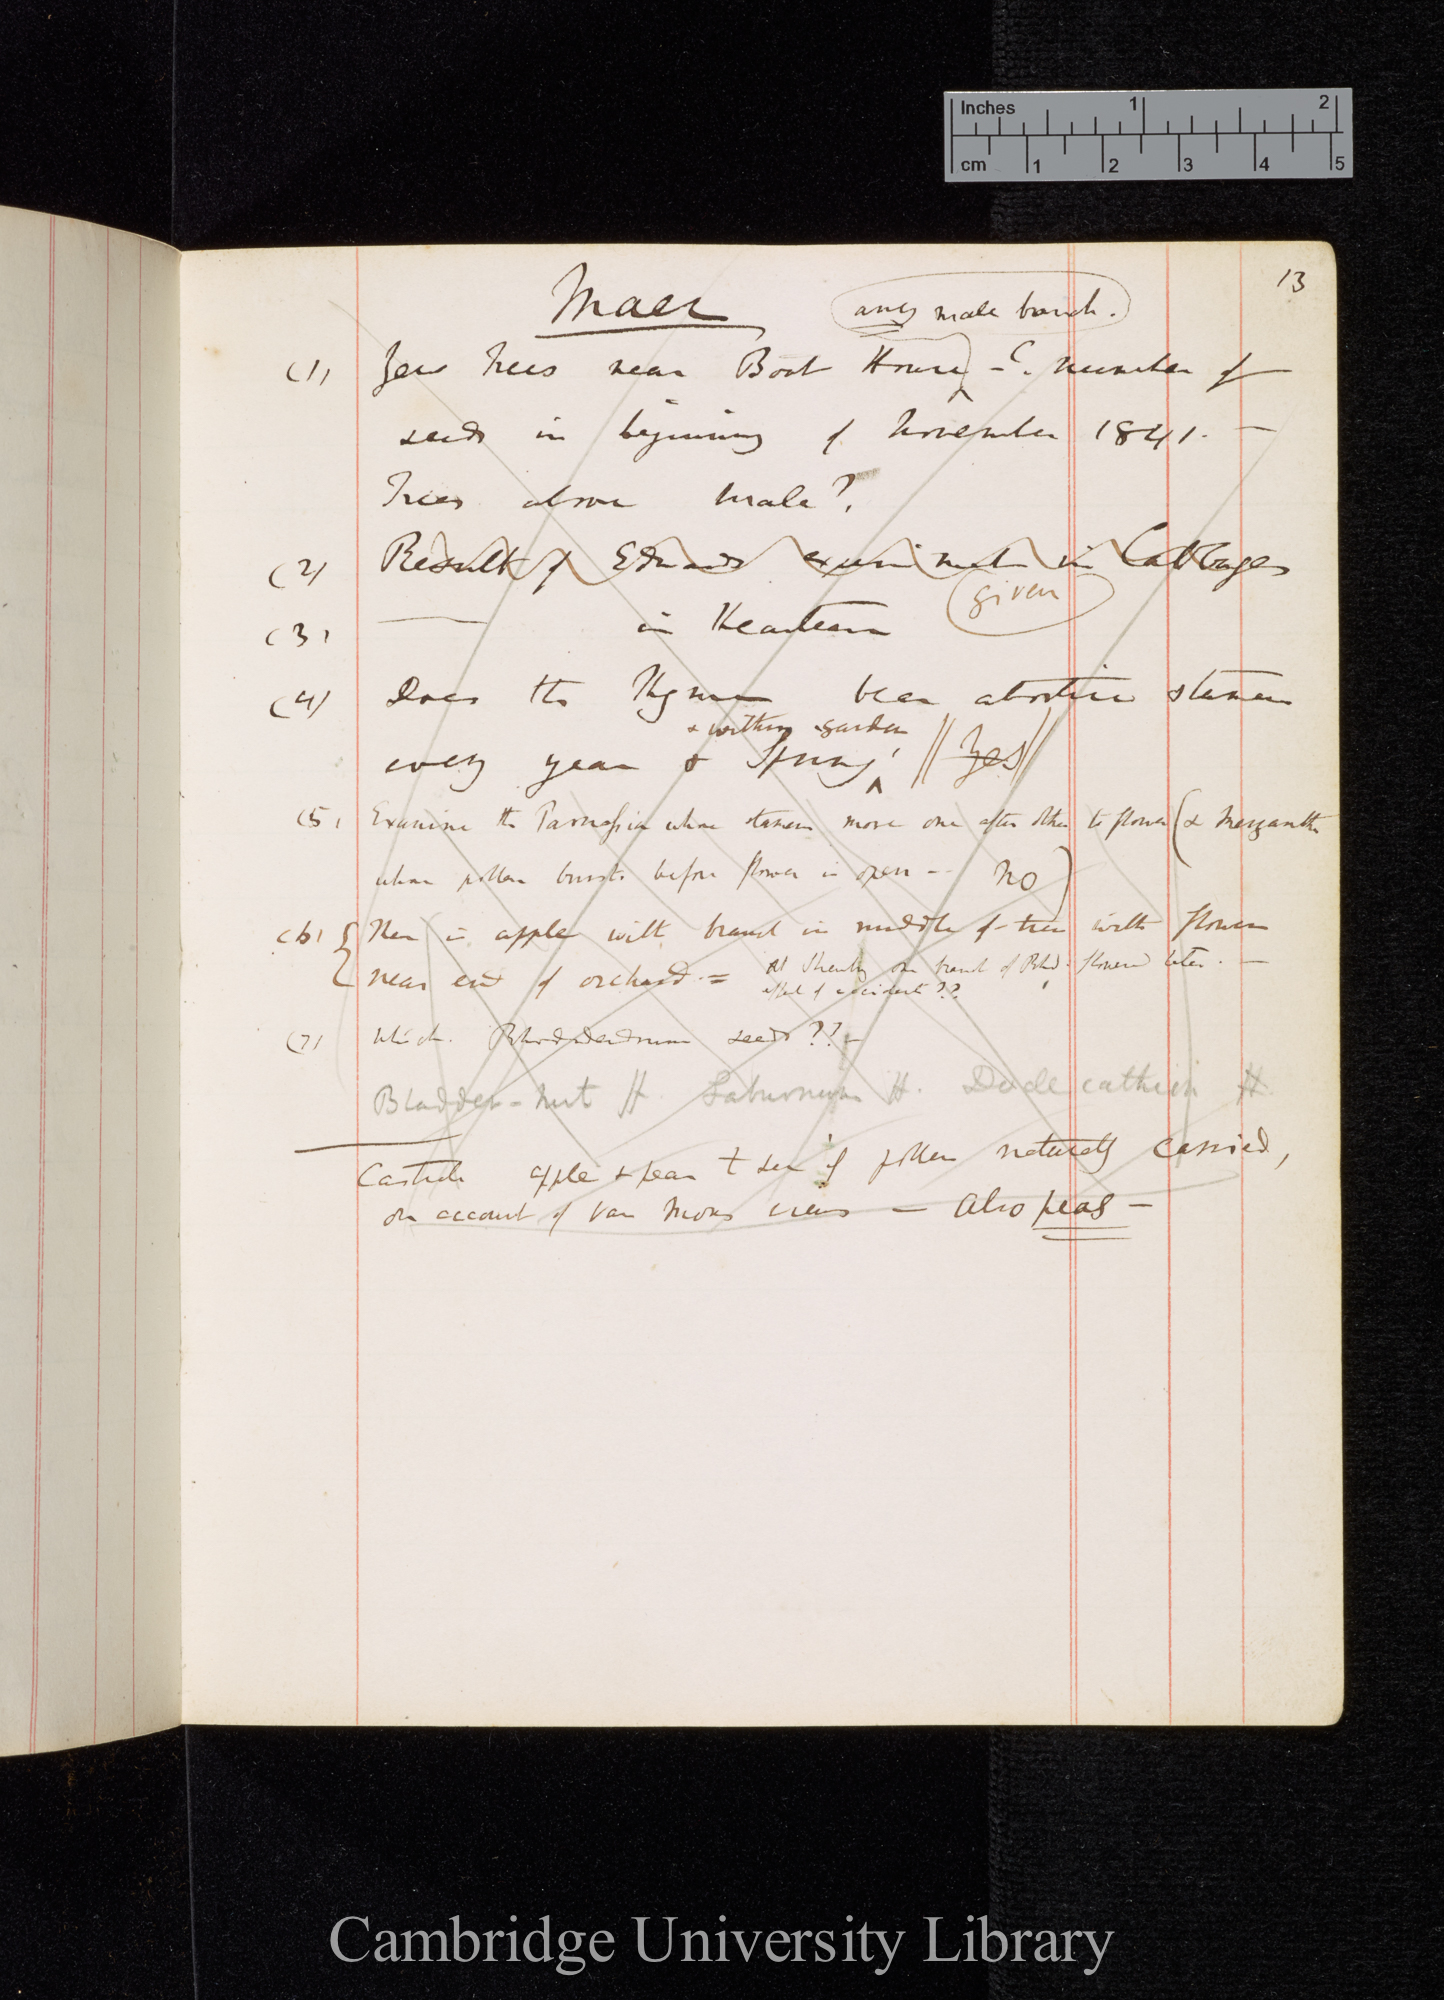 Inches 1 2
cm 1 2 3 4 5
13
Maer
any male branch.
(1) Yew Trees near Boat House – number of
seeds in beginning of November 1841. —
Trees above male?
(2) Result of Edwards experiment in Cabbages
given
(3) —— in Heartsease
(4) Does the Thyme bear abortive stamens
& within garden
every year & Spring, || Yes ||
(5) Examine the Parnassia whose stamens move one after other to flower (& Menyanthes
whose pollen bursts before flower is open – No)
(6) { There is apple with branch in middle of tree with flowers
near end of orchard. = At Shrewsby one branch of Rhod. flowered later. —
effect of accident??
(7) Which Rhododendrum seeds??—
Bladder-nut H. Laburnum H. Dodecatheon H
Castrate apple & pear & see if pollen naturally carried,
on account of Van Mons views — Also peas —
Cambridge University Library